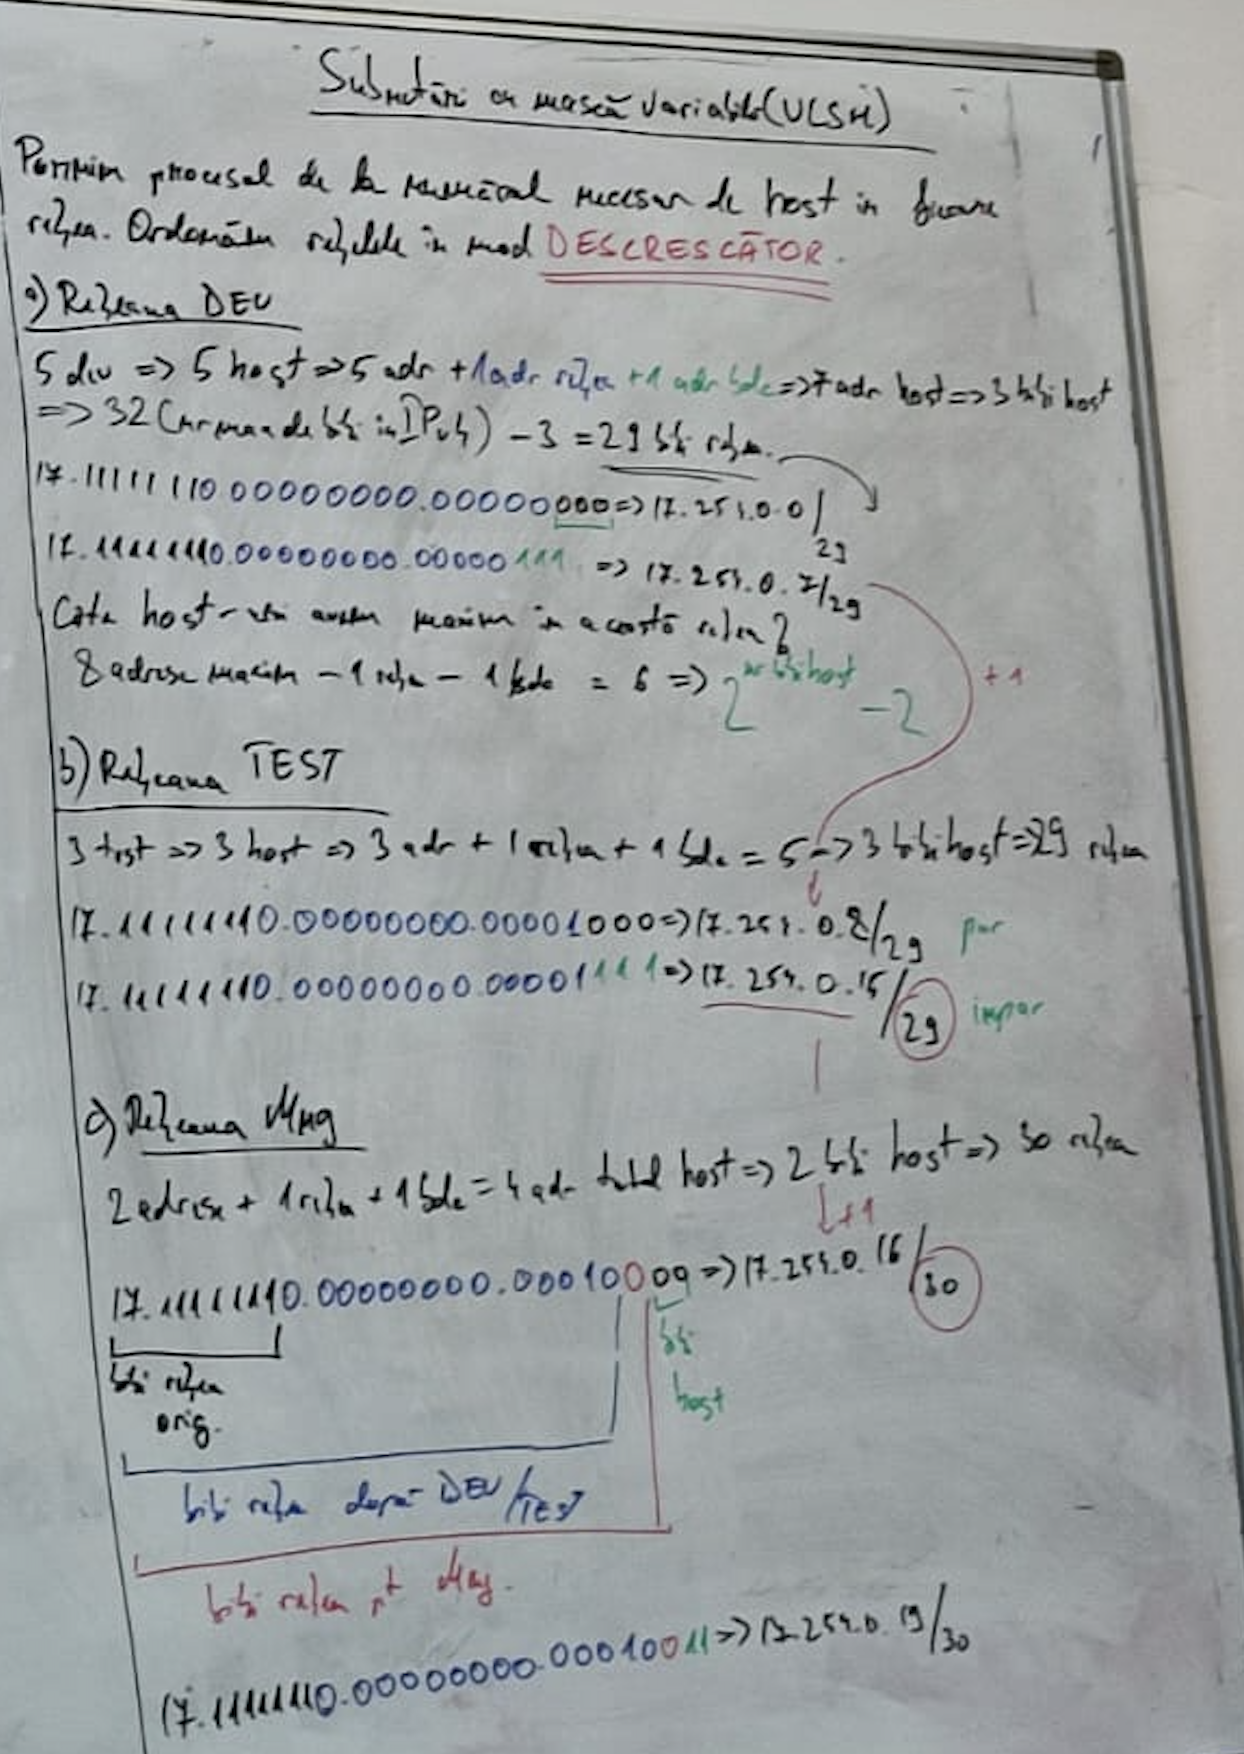 Subnetări cu mască variabilă (VLSM)
Pornim procesul de la numărul necesar de host in fiecare
rețea. Ordonăm rețelele in mod DESCRESCĂTOR.
a) Rețeaua DEV
5 dev => 5 host => 5 adr + 1 adr rețea + 1 adr bdc => 7 adr host => 3 biți host
=> 32 (nr max de biți in IPv4) - 3 = 29 biți rețea.
17.11111110.00000000.00000000 => 17.254.0.0/29
17.11111110.00000000.00000111 => 17.254.0.7/29
Câte host-uri avem maxim in această rețea?
8 adrese maxim - 1 rețea - 1 bdc = 6 => 2^nr biți host - 2
+1
b) Rețeaua TEST
3 test => 3 host => 3 adr + 1 rețea + 1 bdc = 5 => 3 biți host => 29 rețea
17.11111110.00000000.00001000 => 17.254.0.8/29 par
17.11111110.00000000.00001111 => 17.254.0.15/29 impar
c) Rețeaua Mng
2 adrese + 1 rețea + 1 bdc = 4 adr total host => 2 biți host => 30 rețea
+1
17.11111110.00000000.00010000 => 17.254.0.16/30
biți rețea
orig.
biți
host
biți rețea după DEV/TEST
biți rețea pt Mng.
17.11111110.00000000.00010011 => 17.254.0.19/30